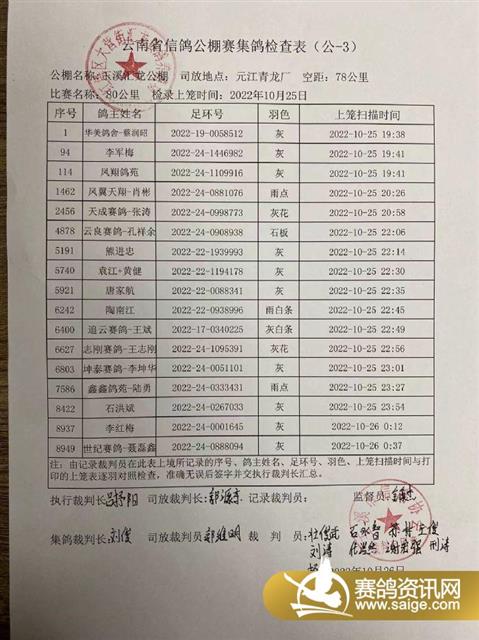 云南省信鸽公棚赛集鸽检查表（公-3）
公棚名称：玉溪汇龙公棚 司放地点：元江青龙厂 空距：78公里
比赛名称：80公里 检录上笼时间：2022年10月25日
序号 鸽主姓名 足环号 羽色 上笼扫描时间
1 华美鸽舍-蔡润昭 2022-19-0058512 灰 2022-10-25 19:38
94 李军梅 2022-24-1446982 灰 2022-10-25 19:41
114 凤翔鸽苑 2022-24-1109916 灰 2022-10-25 19:41
1462 凤翼天翔-肖彬 2022-24-0881076 雨点 2022-10-25 20:26
2456 天成赛鸽-张涛 2022-24-0998773 灰花 2022-10-25 20:58
4878 云良赛鸽-孔祥余 2022-24-0908938 石板 2022-10-25 22:06
5191 熊进忠 2022-22-1939993 灰 2022-10-25 22:14
5740 袁江+黄健 2022-22-1194178 灰 2022-10-25 22:30
5921 唐家航 2022-22-0088341 灰 2022-10-25 22:35
6242 陶南江 2022-22-0938996 雨白条 2022-10-25 22:45
6400 追云赛鸽-王斌 2022-17-0340225 灰白条 2022-10-25 22:49
6627 志刚赛鸽-王志刚 2022-24-1095391 灰花 2022-10-25 22:56
6803 坤泰赛鸽-李坤华 2022-24-0051101 灰 2022-10-25 23:01
7586 鑫鑫鸽苑-陆勇 2022-24-0333431 雨点 2022-10-25 23:27
8422 石洪斌 2022-24-0267033 灰 2022-10-25 23:54
8937 李红梅 2022-24-0001645 灰 2022-10-26 0:12
8949 世纪赛鸽-聂磊鑫 2022-24-0888094 灰 2022-10-26 0:37
注：由记录裁判员在此表上填所记录的序号、鸽主姓名、足环号、羽色、上笼扫描时间与打印的上笼表逐羽对照检查，准确无误后签字并交执行裁判长汇总。
执行裁判长： 司放裁判长： 记录裁判员： 监督员：
集鸽裁判长：刘俊 司放裁判员： 裁 判 员：
刘涛
2022年10月26日
赛鸽资讯网
www.saige.com